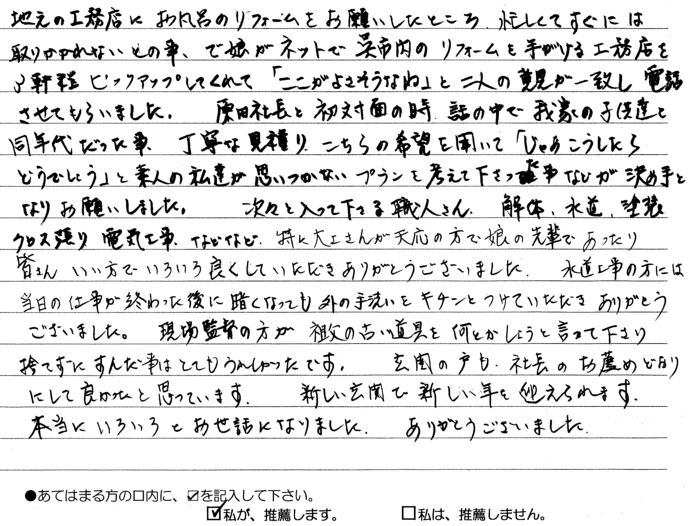 地元の工務店にお風呂のリフォームをお願いしたところ、忙しくてすぐには
取りかかれないとの事、で娘がネットで呉市内のリフォームを手がける工務店を
3軒程ピックアップしてくれて「ここがよさそうなね」と二人の意見が一致し電話
させてもらいました。 原田社長と初対面の時、話の中で我家の子供達と
同年代だった事、丁寧な見積り、こちらの希望を聞いて「じゃあこうしたら
どうでしょう」と素人の私達が思いつかないプランを考えて下さった事などが決め手と
なりお願いしました。 次々と入って下さる職人さん、解体、水道、塗装
クロス張り、電気工事、などなど、特に大工さんが天応の方で娘の先輩であったり
皆さんいい方でいろいろ良くしていただきありがとうございました。 水道工事の方には
当日の仕事が終わった後に暗くなっても外の手洗いをキチンとつけていただきありがとう
ございました。 現場監督の方が祖父の古い道具を何とかしようと言って下さり
捨てずにすんだ事はとてもうれしかったです。 玄関の戸も、社長のお薦めどおり
にして良かったと思っています。 新しい玄関で新しい年を迎えられます。
本当にいろいろとお世話になりました。 ありがとうございました。
●あてはまる方の口内に、☑を記入して下さい。
☑私が、推薦します。 □私は、推薦しません。